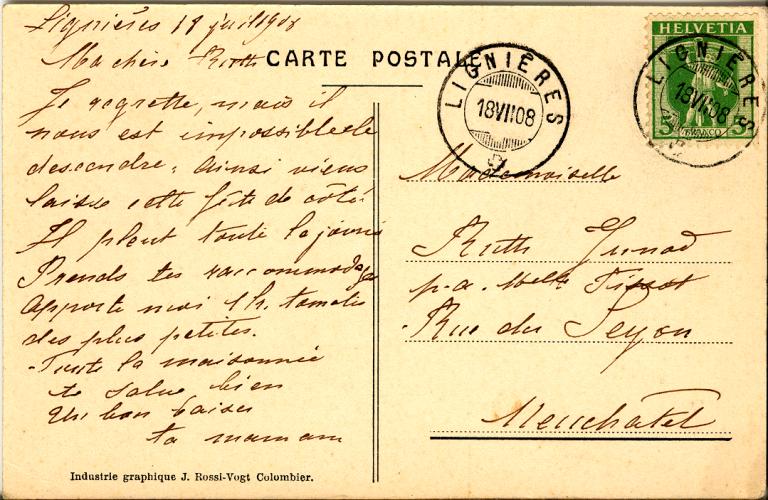 Lignières 18 juil 1908
Ma chère Ruth
CARTE POSTALE
Je regrette, mais il
nous est impossible de
descendre; ainsi viens
laisse cette fête de côté.
Il pleut toute la journée
Prends tes raccommodages
apporte moi 1 k. tomates
des plus petites.
Toute la maisonnée
te salue bien
Un bon baiser
ta maman
Industrie graphique J. Rossi-Vogt Colombier.
LIGNIÈRES
18 VII 08
HELVETIA
5 5
LIGNIÈRES
18 VII 08
Mademoiselle
Ruth Junod
p. a. Melle Tissot
Rue du Seyon
Neuchatel